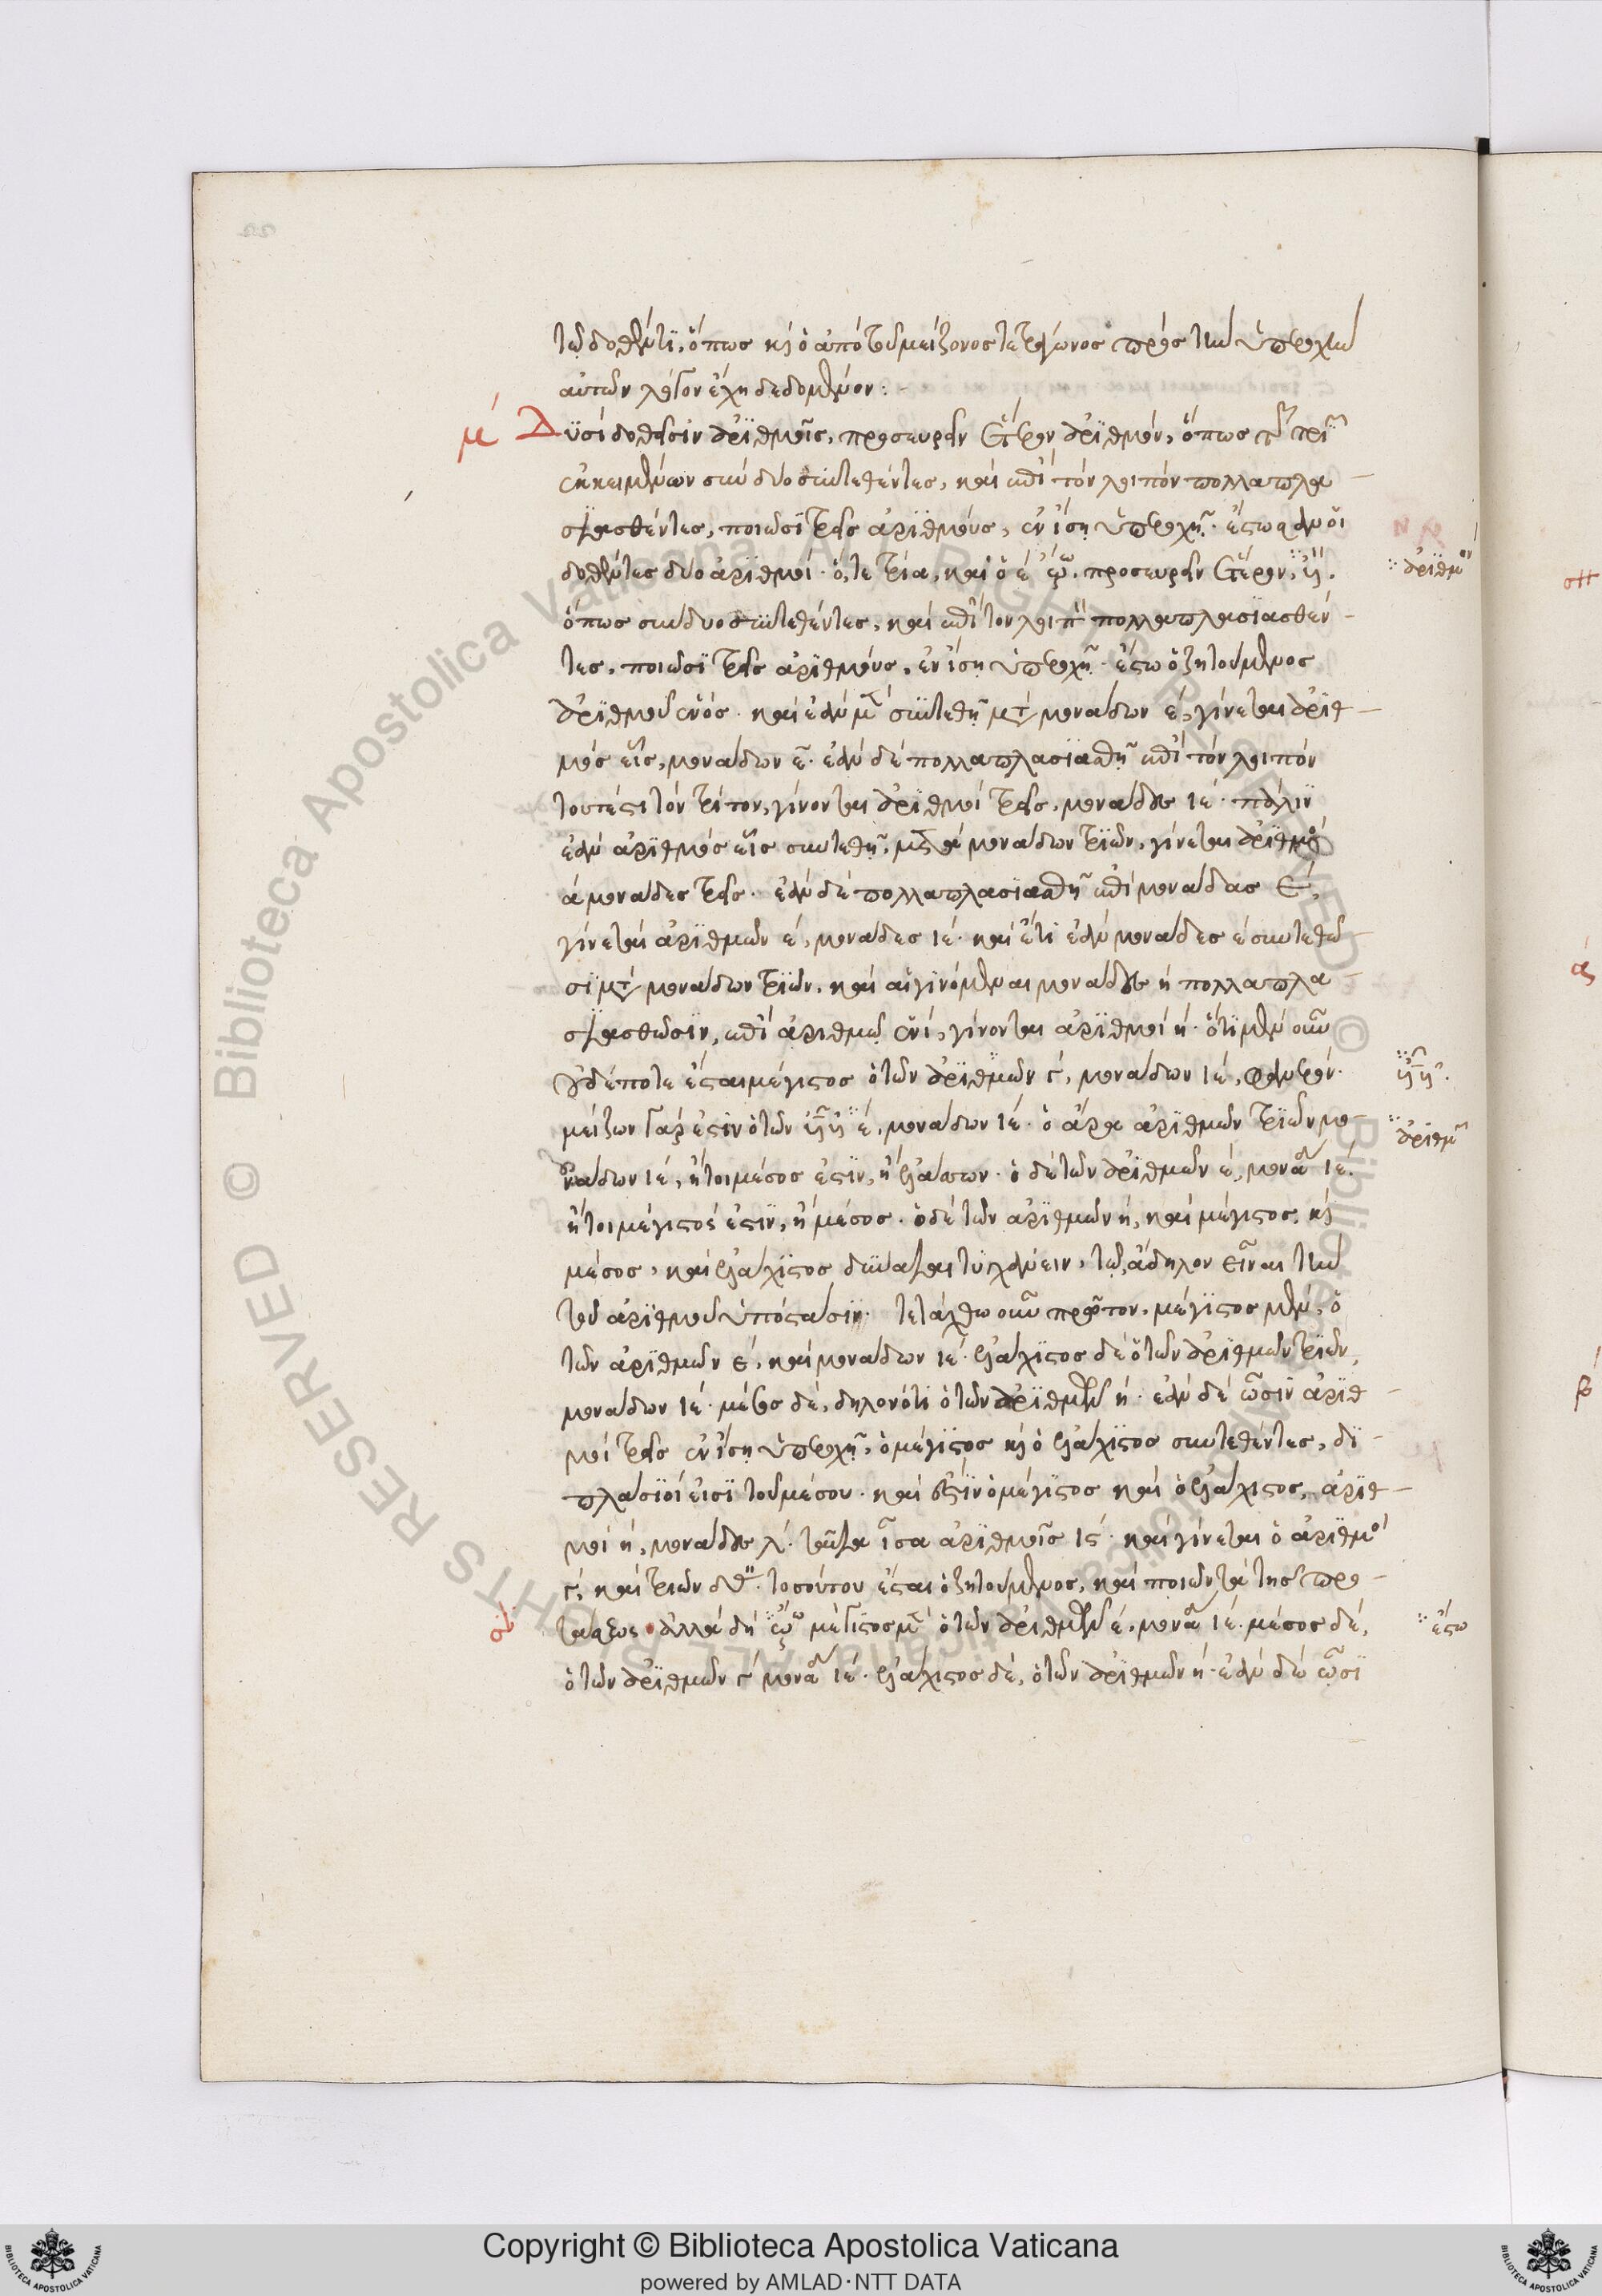 τῷ δοθέντι, ὅπως κὶ ὁ ἀπὸ τοῦ μείζονος τετράγωνος πρὸς τὴν ὑπεροχὴν
αὐτῶν λόγον ἔχῃ δεδομένον :
μ Δυσὶ δοθεῖσιν ἀριθμοῖς, προσευρεῖν ἕτερον ἀριθμὸν, ὅπως
ἐκκειμένων σὺν δύο συντεθέντες, καὶ ἐπὶ τὸν λοιπὸν πολλαπλα
σιασθέντες, ποιῶσι τρεῖς ἀριθμοὺς, ἐν ἴσῃ ὑπεροχῇ. ἔστωσαν οἱ
δοθέντες δύο ἀριθμοὶ. ὅ, τε τρία, καὶ ὁ ε προσευρεῖν ἕτερον,
ἀριθμὸν
ὅπως σὺν δύο συντεθέντες, καὶ ἐπὶ τὸν λοιπ πολλαπλασιασθέν
τες, ποιῶσι τρεῖς ἀριθμοὺς, ἐν ἴσῃ ὑπεροχῇ. ἔστω ὁ ζητούμενος
ἀριθμοῦ ἑνός. καὶ ἐὰν μὲν συντεθῇ μετὰ μονάδων έ, γίνεται ἀριθ
μὸς εἷς, μονάδων ε. ἐὰν δὲ πολλαπλασιασθῇ ἐπὶ τὸν λοιπὸν
τουτέστι τὸν τρίτον, γίνονται ἀριθμοὶ τρεῖς, μονάδες ιέ. πάλιν
ἐὰν ἀριθμὸς εἷς συντεθῇ, μετὰ μονάδων τριῶν, γίνεται ἀριθμὸς
ά μονάδες τρεῖς. ἐὰν δὲ πολλαπλασιασθῇ ἐπὶ μονάδας έ,
γίνεται ἀριθμῶν έ, μονάδες ιέ. καὶ ἔτι ἐὰν μονάδες έ συντεθῶ
σι μετὰ μονάδων τριῶν, καὶ αἱ γινόμεναι μονάδες ή πολλαπλα
σιασθῶσιν, ἐπὶ ἀριθμὸν ἑνὶ, γίνονται ἀριθμοὶ ή. ὅτι μὲν οὖν
οὐδέποτε ἔσται μέγιστος ὁ τῶν ἀριθμῶν γ, μονάδων ιέ, φανερόν.
μείζων γάρ ἐστιν ὁ τῶν έ, μονάδων ιέ. ὁ ἄρα ἀριθμῶν τριῶν μο
ἀριθμῶν
νάδων ιέ, ἤτοι μέσος ἐστὶν, ἢ ἐλάσσων. ὁ δὲ τῶν ἀριθμῶν έ, μονάδων ιέ.
ἤτοι μέγιστός ἐστιν, ἢ μέσος. ὁ δὲ τῶν ἀριθμῶν ή, καὶ μέγιστος, κὶ
μέσος, καὶ ἐλάχιστος δύναται τυγχάνειν, τῷ, ἄδηλον εἶναι τὴν
τοῦ ἀριθμοῦ ὑπόστασιν. τετάχθω οὖν πρῶτον, μέγιστος μὲν, ὁ
τῶν ἀριθμῶν έ, καὶ μονάδων ιέ. ἐλάχιστος δὲ ὁ τῶν ἀριθμῶν τριῶν,
μονάδων ιέ. μέσος δὲ, δηλονότι ὁ τῶν ἀριθμῶν ή. ἐὰν δὲ ὦσιν ἀριθ
μοὶ τρεῖς ἐν ἴσῃ ὑπεροχῇ, ὁ μέγιστος κὶ ὁ ἐλάχιστος συντεθέντες, δι
πλάσιοί εἰσι τοῦ μέσου. καὶ ἔστιν ὁ μέγιστος καὶ ὁ ἐλάχιστος, ἀριθ
μοὶ ή, μονάδες λ. ταῦτα ἴσα ἀριθμοῖς ις. καὶ γίνεται ὁ ἀριθμὸς
γ, καὶ τριῶν τοσούτου ἔσται ὁ ζητούμενος, καὶ ποιῶν τὰ τῆς προ
τάσεως. ἀλλὰ δὴ μέγιστος μὲν ὁ τῶν ἀριθμῶν έ, μονάδων ιέ. μέσος δὲ,
ἔστω
ὁ τῶν ἀριθμῶν γ μονάδων ιέ. ἐλάχιστος δὲ, ὁ τῶν ἀριθμῶν ή. ἐὰν δὲ ὦσι
Copyright © Biblioteca Apostolica Vaticana
powered by AMLAD·NTT DATA